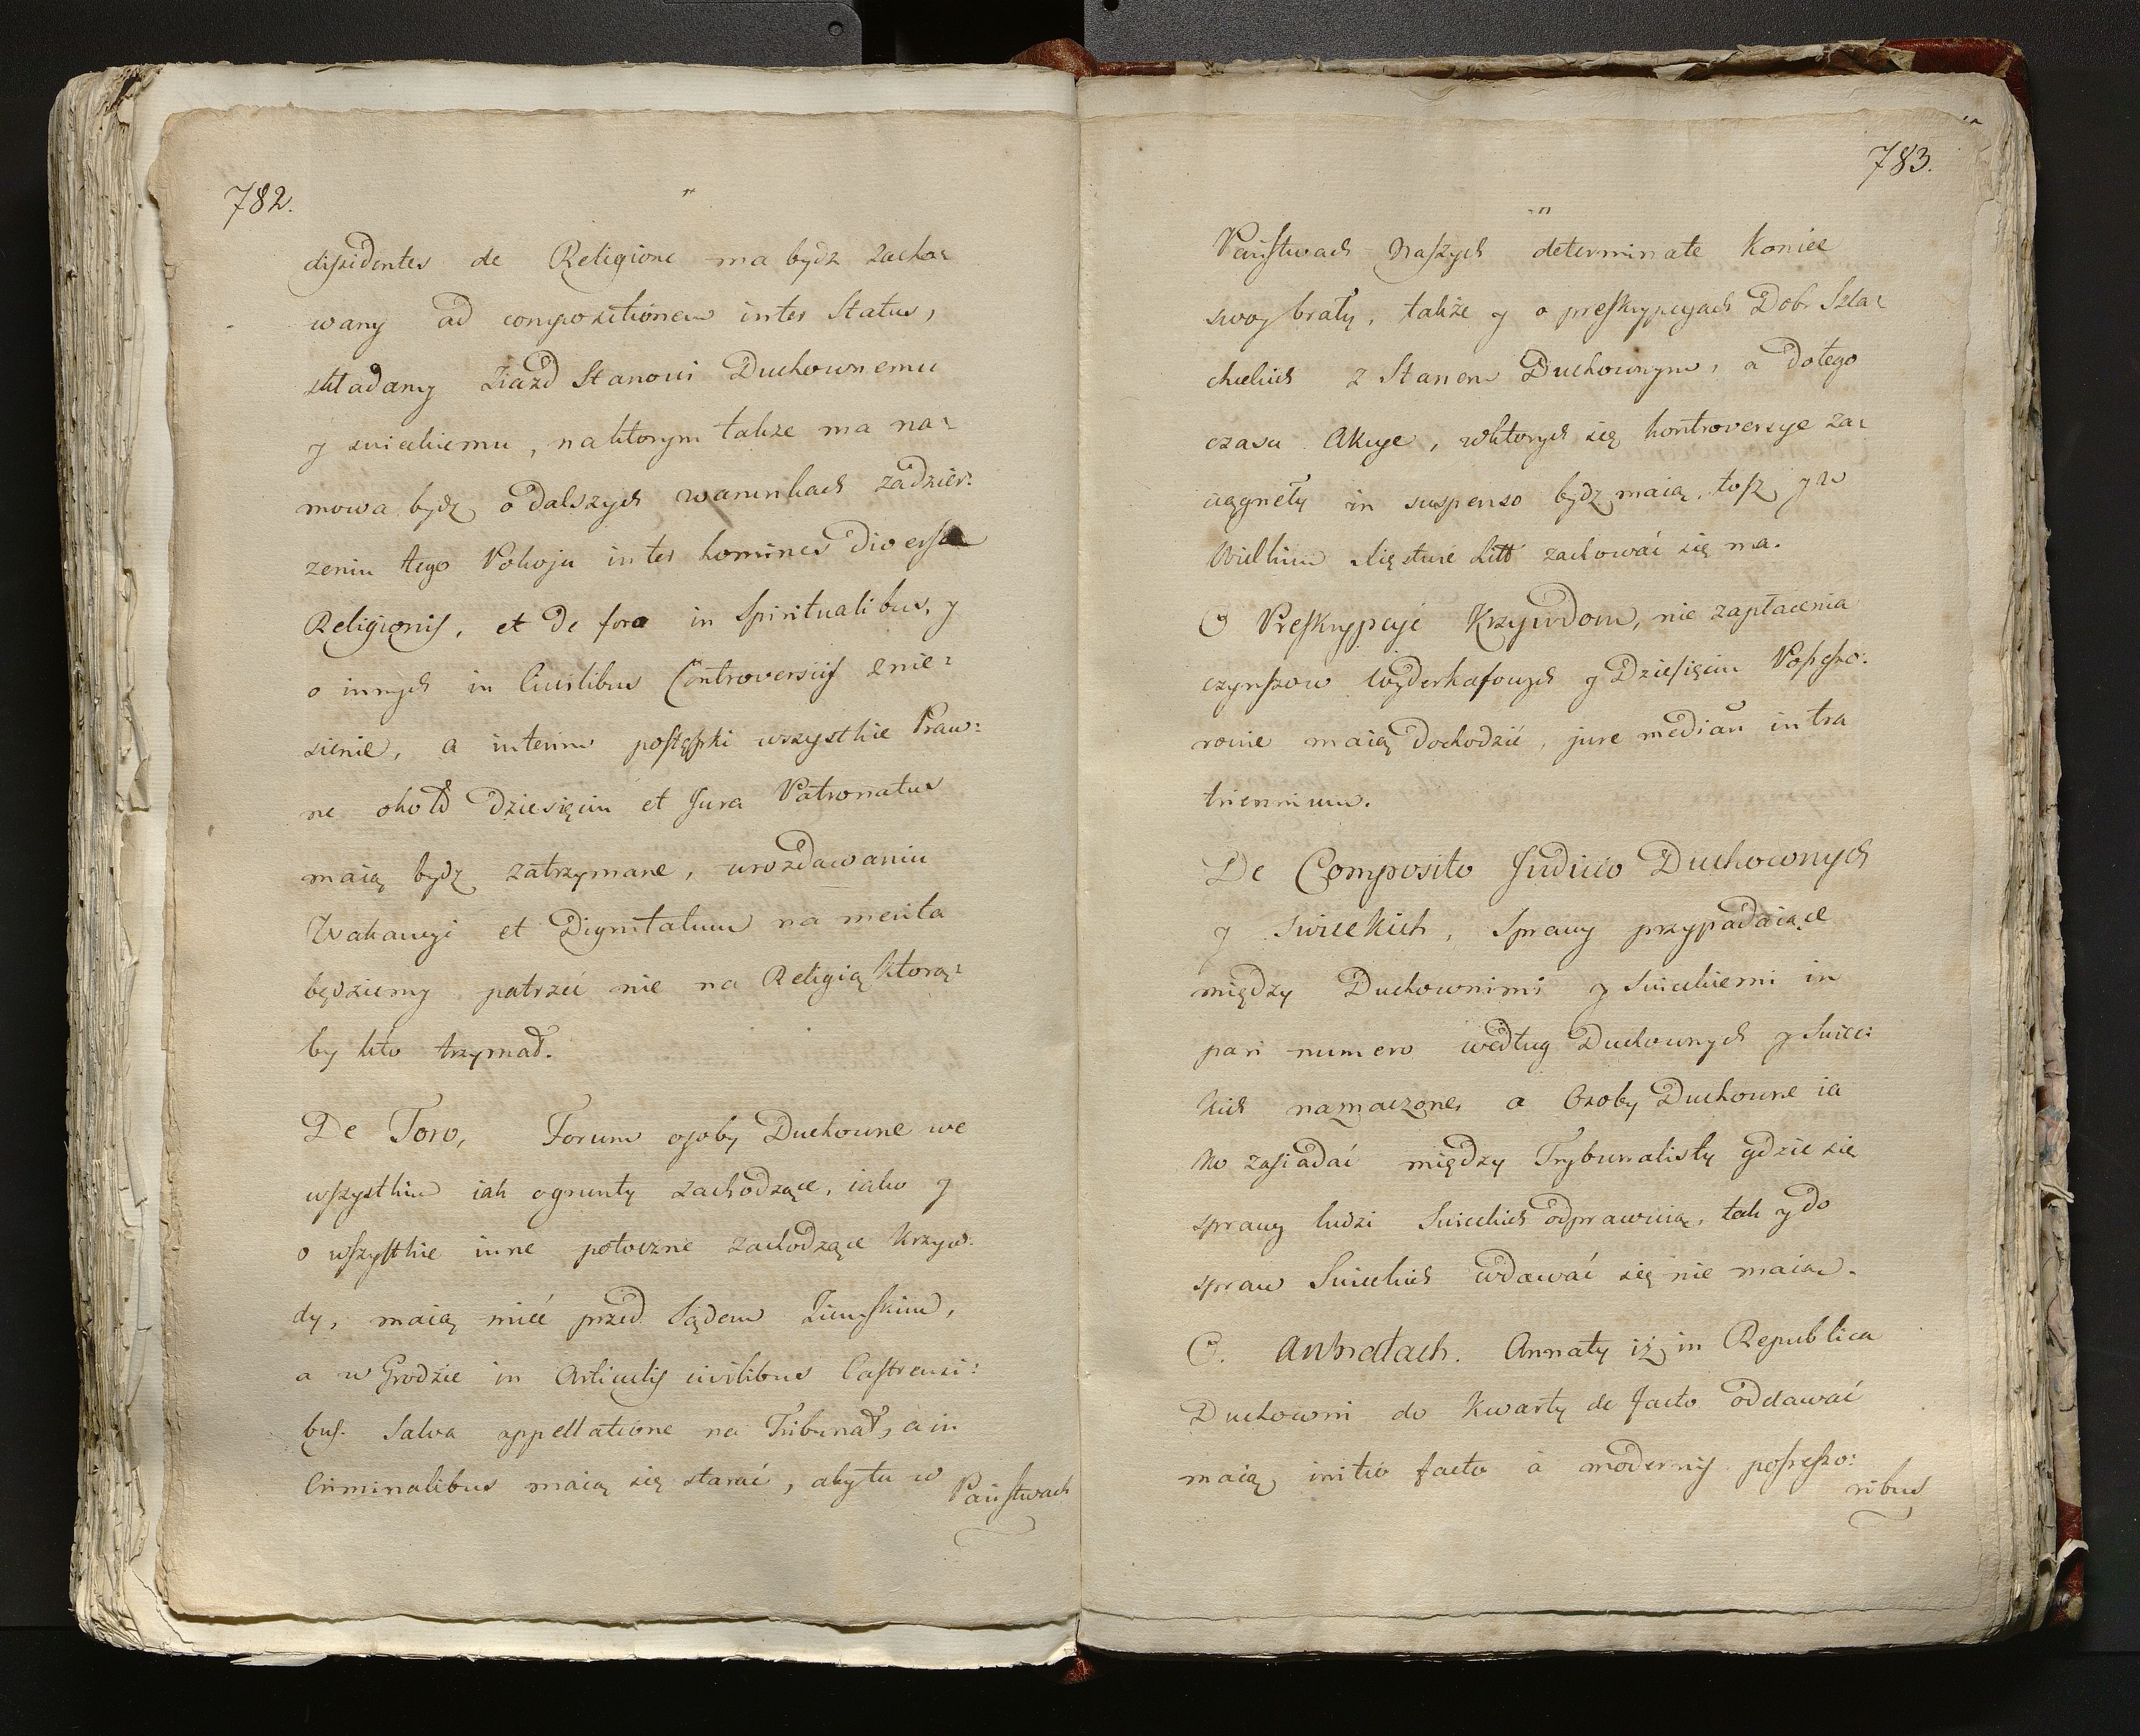 782.
dissidentes de Religione ma bydz zacho=
wany ad compositionem inter Status,
składamy Ziazd Stanowi Duchownemu
y swieckiemu, naktorym także ma na=
mowa bydz o dalszych warunkach zadzier=
zeniu tego Pokoju inter homines diversa
Religionis, et de foro in Spiritualibus, y
o innych in Civilibus Controversiis znie=
sienie, a interim postępki wszystkie Praw=
ne około dziesięcin et Jura Patronatus
maią bydz zatrzymane, w rozdawaniu
Wakancyi et Dignitatum na merita
będziemy patrzeć nie na Religią ktorą=
by kto trzymał.
De Foro, Forum osoby Duchowne we
wszystkim iak o grunty zachodzące, iako y
o wszystkie inne potoczne zachodzące krzyw=
dy, maią mieć przed Sądem Ziemskim,
a w Grodzie in Articulis civilibus Castrensi=
bus. Salva appellatione na Tribunał, a in
Criminalibus maią się starać, aby tu w
Państwach
783.
Państwach Naszych determinate koniec
swoy brały, także y o preskrypcyach Dobr Szla=
checkich z Stanem Duchownym, a do tego
czasu Akcye, w ktorych się kontroversye za=
ciągnęły in suspenso bydz maią, tosz y w
Wielkim Xięstwie Litt zachować się ma.
O Preskrypcyi Krzywdom, nie zapłacenia
czynszow wyderkafowych y Dziesięcin Possesso=
rowie maią dochodzić, jure mediań intra
triennium.
De Composito Judicio Duchownych
y swieckich, Sprawy przypadaiące
między Duchownimi y Swieckiemi in
pari numero według Duchownych y Swiec=
kich naznaczone, a Osoby Duchowne ia
ko zasiadać między Trybunalisty gdzie się
sprawy ludzi Swieckich odprawuią, tak y do
spraw Swieckich wdawać się nie maią.
O. Annatach. Annaty iż in Republica
Duchowni do Kwarty de facto oddawać
maią, initio facto à modernis possesso=
ribus